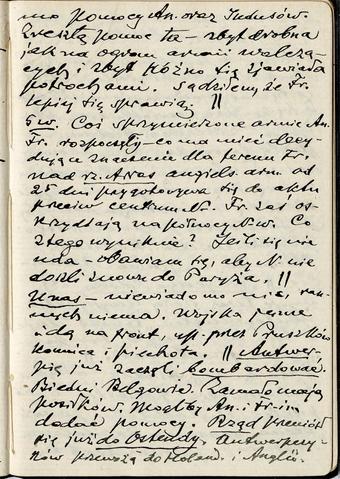 mo pomocy An. oraz Indusów.
Zresztą pomoc ta – zbyt drobna
jak na ogrom armii walczą-
cych i zbyt późno się zjawiała
potrochami. Sądziłem, że Fr.
lepiej się sprawią. ||
5 w. Coś sprzymierzone armie An.
Fr. rozpoczęły – co ma mieć decy-
dujące znaczenie dla terenu Fr.
nad rz. Arras angiels. arm. od
25 dni przygotowywa się do aktu
przeciw centrum N. Fr. zaś os-
krzydlają na północy N-ów. Co
z tego wyniknie? Jeśli się nie
uda – obawiam się, aby N. nie
doszli znowu do Paryża. ||
U nas – niewiadomo nic, ran-
nych niema. Wojska jeszcze
idą na front, np. przez Pruszków
konnica i piechota. || Antwer-
pię już zaczęli bombardować.
Biedni Belgowie. Zamało mają
posiłków. Mogliby An. i Fr. im
dodać pomocy. Rząd przeniósł
się już do Ostendy. Antwerpczy-
ków przewożą do Holand. i Anglii.